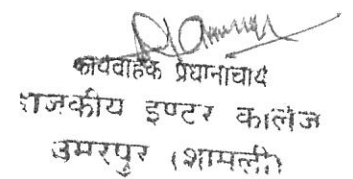 कार्यवाहक प्रधानाचार्य
राजकीय इण्टर कालेज
उमरपुर (शामली)